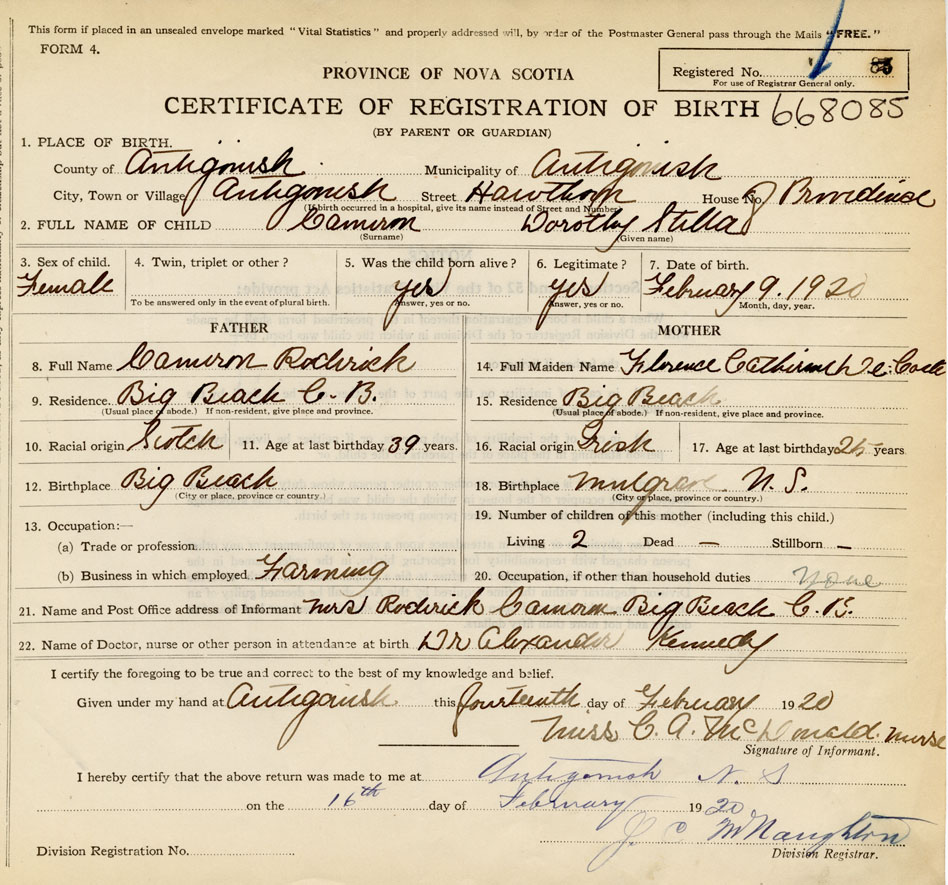 This form if placed in an unsealed envelope marked "Vital Statistics" and properly addressed will, by order of the Postmaster General pass through the Mails "FREE."
FORM 4.
Registered No. 85
For use of Registrar General only.
PROVINCE OF NOVA SCOTIA
CERTIFICATE OF REGISTRATION OF BIRTH 668085
(BY PARENT OR GUARDIAN)
1. PLACE OF BIRTH.
County of Antigonish Municipality of Antigonish
City, Town or Village Antigonish Street Hawthorn House No. Providence
(If birth occurred in a hospital, give its name instead of Street and Number)
2. FULL NAME OF CHILD Cameron Dorothy Stella
(Surname) (Given name)
3. Sex of child. 4. Twin, triplet or other? 5. Was the child born alive? 6. Legitimate? 7. Date of birth.
Female yes yes February 9. 1920
To be answered only in the event of plural birth. Answer, yes or no. Answer, yes or no. Month, day, year.
FATHER MOTHER
8. Full Name Cameron Roderick 14. Full Maiden Name Florence Catherine
9. Residence. Big Beach C. B. 15. Residence Big Beach
(Usual place of abode.) If non-resident, give place and province. (Usual place of abode.) If non-resident, give place and province.
10. Racial origin Scotch 11. Age at last birthday 39 years. 16. Racial origin Irish 17. Age at last birthday years
12. Birthplace Big Beach 18. Birthplace Mulgrave N. S.
(City or place, province or country) (City or place, province or country.)
13. Occupation:— 19. Number of children of this mother (including this child.)
(a) Trade or profession Living 2 Dead — Stillborn —
(b) Business in which employed Farming 20. Occupation, if other than household duties None
21. Name and Post Office address of Informant Mrs Roderick Cameron Big Beach C. B.
22. Name of Doctor, nurse or other person in attendance at birth Dr Alexander Kennedy
I certify the foregoing to be true and correct to the best of my knowledge and belief.
Given under my hand at Antigonish this fourteenth day of February 1920
Miss C. A. McDonald. nurse
Signature of Informant.
I hereby certify that the above return was made to me at Antigonish N. S
on the 16th day of February 1920
J C McNaughton
Division Registration No. Division Registrar.